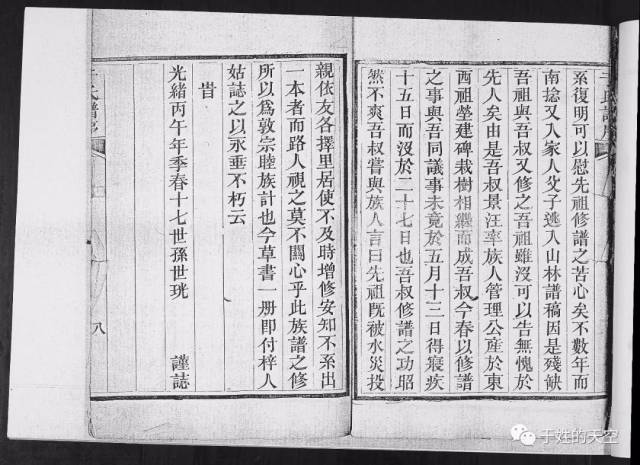 系復明可以慰先祖修譜之苦心矣不數年而
南捻又入家人父子逃入山林譜稿因是殘缺
吾祖與吾叔又修之吾祖雖沒可以告無愧於
先人矣由是吾叔景汪率族人管理公產於東
西祖塋建碑栽樹相繼而成吾叔今春以修譜
之事與吾同議事未竟於五月十三日得寢疾
十五日而沒於二十七日也吾叔修譜之功昭
然不爽吾叔嘗與族人言曰先祖既被水災投
親依友各擇里居使不及時增修安知不系出
一本者而路人視之莫不關心乎此族譜之修
所以爲敦宗睦族計也今草書一册即付梓人
姑誌之以永垂不朽云
旹
光緒丙午年季春十七世孫世珖 謹誌
氏譜序
八
于姓的天空